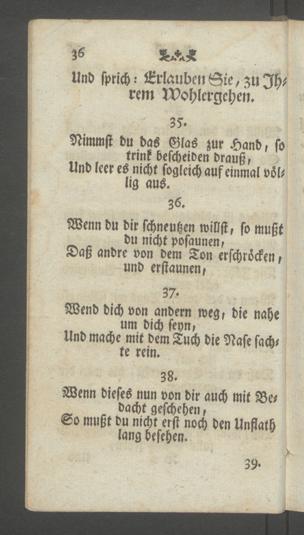 36
Und sprich: Erlauben Sie, zu Ih-
rem Wohlergehen.
35.
Nimmst du das Glas zur Hand, so
trink bescheiden drauß,
Und leer es nicht sogleich auf einmal völ-
lig aus.
36.
Wenn du dir schneutzen willst, so mußt
du nicht posaunen,
Daß andre von dem Ton erschröcken,
und erstaunen,
37.
Wend dich von andern weg, die nahe
um dich seyn,
Und mache mit dem Tuch die Nase sach-
te rein.
38.
Wenn dieses nun von dir auch mit Be-
dacht geschehen,
So mußt du nicht erst noch den Unflath
lang besehen.
39.